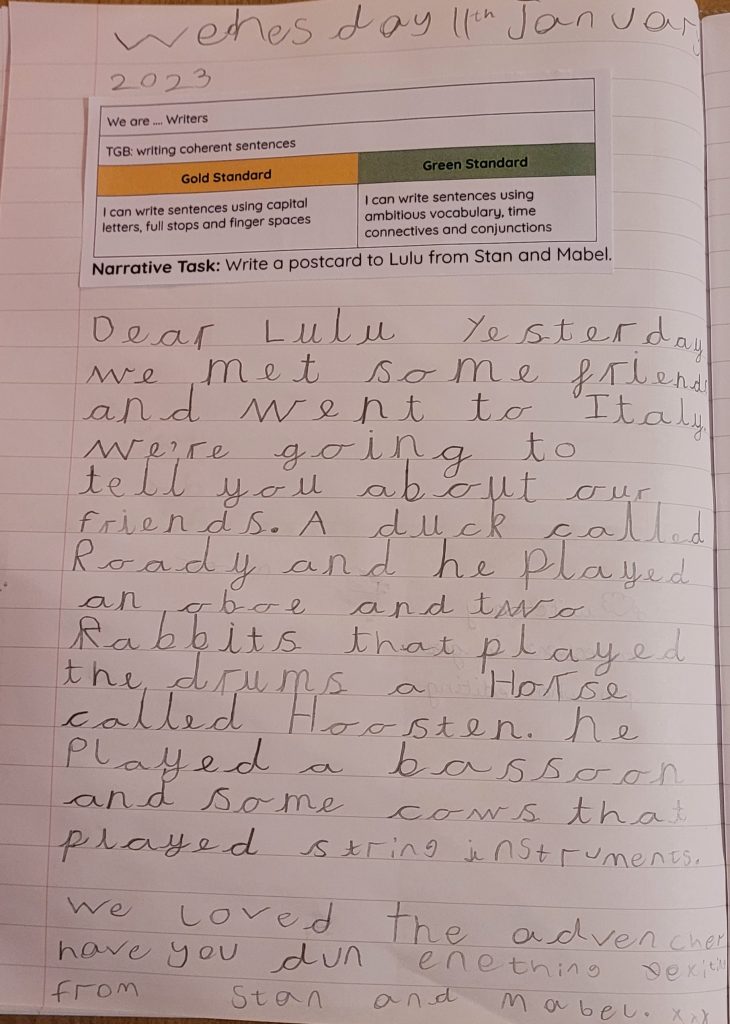 Wednesday 11th January
2023
We are .... Writers
TGB: writing coherent sentences
Gold Standard
Green Standard
I can write sentences using capital
letters, full stops and finger spaces
I can write sentences using
ambitious vocabulary, time
connectives and conjunctions
Narrative Task: Write a postcard to Lulu from Stan and Mabel.
Dear Lulu Yesterday
we met some friends
and went to Italy.
We're going to
tell you about our
friends. A duck called
Roady and he Played
an oboe and two
Rabbits that played
the drums a Horse
called Hoosten. he
Played a bassoon
and some cows that
played string instruments.
We loved the advencher
have you dun enething
from Stan and Mabel. xxx